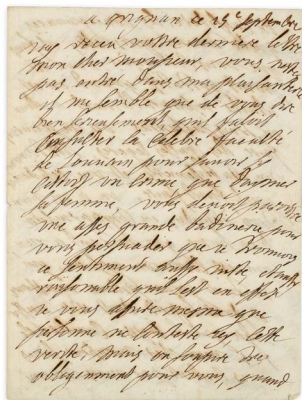 a grignan ce 25e septembre
jay receu vostre derniere lettre
mon cher monsieur, vous nestes
pas entré dans ma plaisanterie
il me semble que de vous dire
seulement quil faloit
Consulter la Celebre faculté
de Louvain pour savoir si
cestoit un crime que daymer
sa femme, vous devoit paroistre
une asses grande badinerie pour
vous persuader que je trouvois
ce sentiment aussy juste et aussy
raisonable quil lest en effet
je vous asure mesme que
personne ne Conteste icy cette
verité, mais on soupire
obligeamment pour vous quand